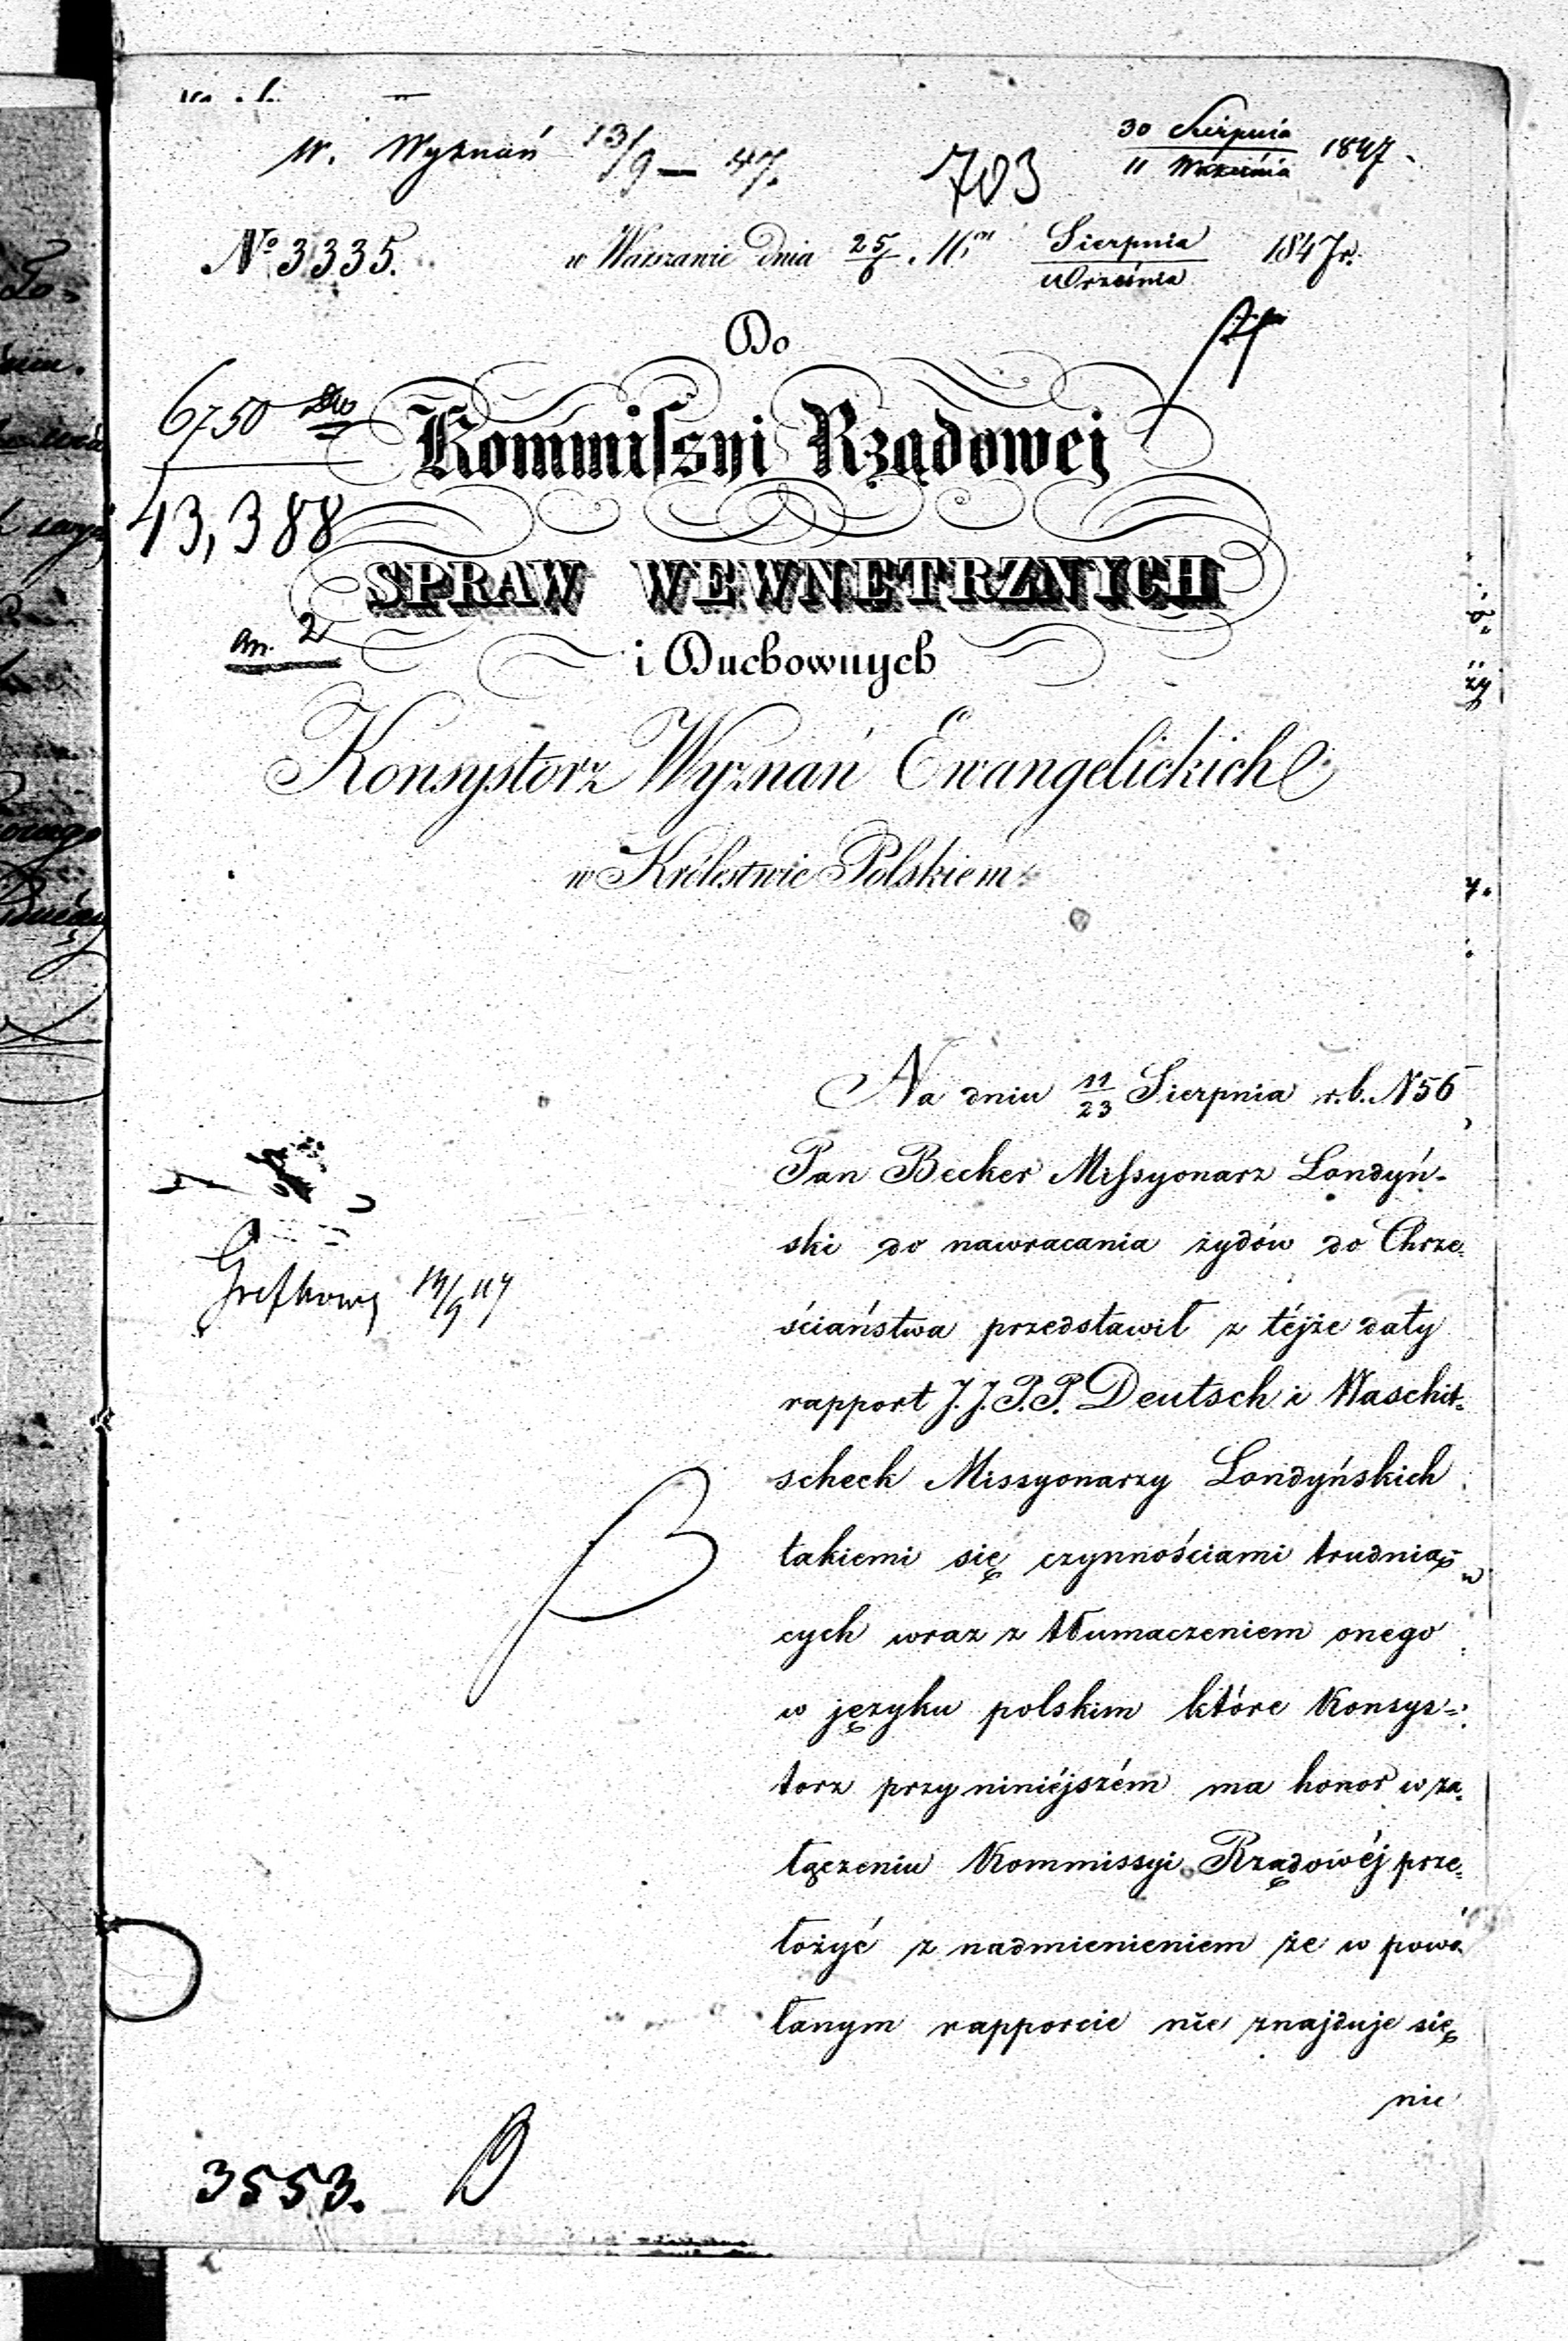 W. Wyznań 13/9 – 47.
703
30 Sierpnia
11 Września 1847
№ 3335.
w Warszawie dnia 25/6 Sierpnia
Września 1847 r.
Do
6750
Kommissyi Rządowej
43,388
SPRAW WEWNĘTRZNYCH
an. 2
i Duchownych
Konsystorz Wyznań Ewangelickich
w Królestwie Polskiem.
Na dniu 11/23 Sierpnia r. b. N 56
Pan Becker Missyonarz Londyń-
ski do nawracania żydów do Chrze-
ściaństwa przedstawił z téjże daty
rapport J. J. P. P. Deutsch i Waschit-
scheck Missyonarzy Londyńskich
takiemi się czynnościami trudnią-
cych wraz z tłumaczeniem onego
w języku polskim które Konsys=
torz przy niniéjszém ma honor w za-
łączeniu Kommissyi Rządowéj prze-
łożyć z nadmienieniem że w powo-
łanym rapporcie nie znajduje się
nic
3553.